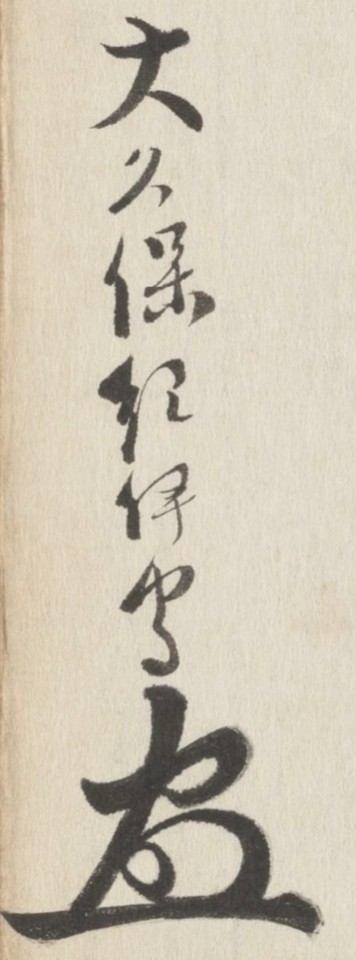 大久保紀伊守